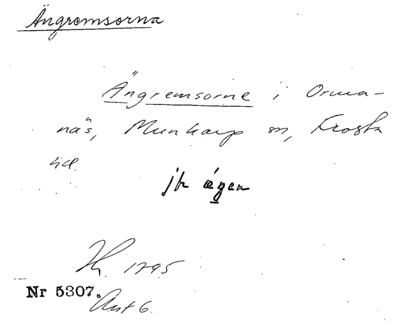 Ängremsorna
Ängremsorne i Orma-
näs, Munkarp sn, Frosta
hd.
jfr ägor
H. 1795
Nr 5307.
Akt 6.